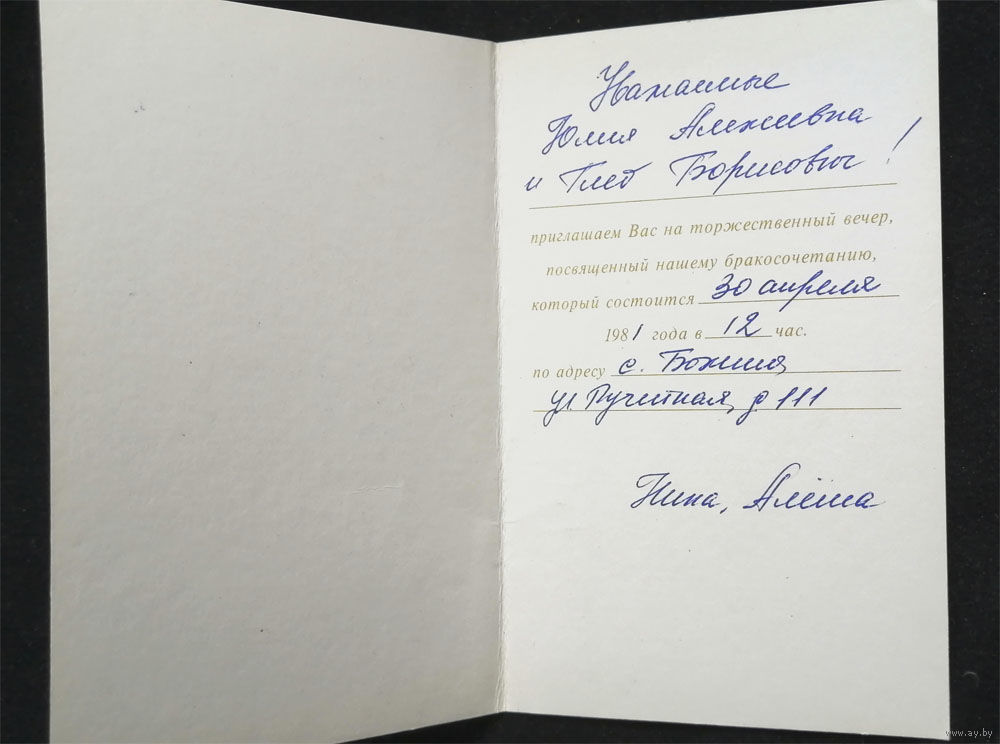 Уважаемые
Юлия Алексеевна
и Глеб Борисович!
приглашаем Вас на торжественный вечер,
посвященный нашему бракосочетанию,
который состоится 30 апреля
1981 года в 12 час.
по адресу с.
ул. д 111
Нина, Алёша
www.ay.by